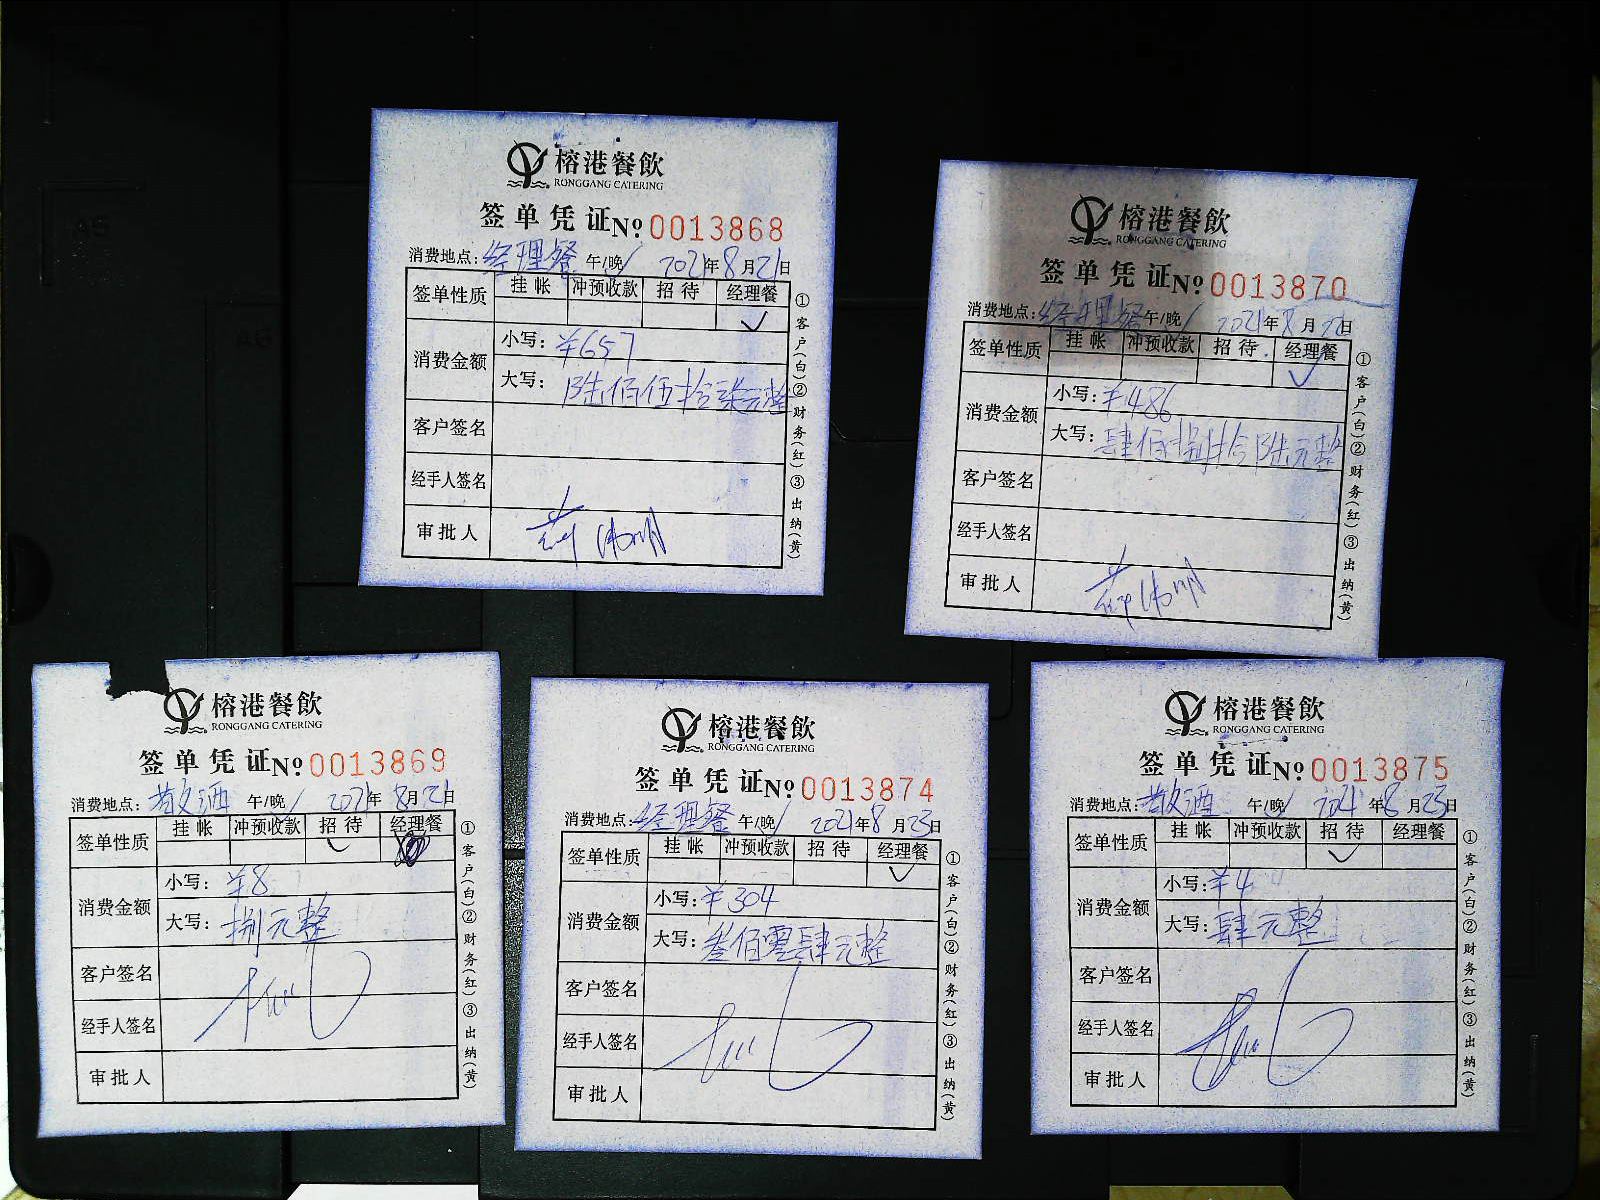 榕港餐飲
RONGGANG CATERING
签单凭证№0013868
消费地点:经理餐 午/晚/ 2021年8月21日
签单性质 挂帐 冲预收款 招待 经理餐
✓
消费金额 小写:¥657
大写:陆佰伍拾柒元整
客户签名
经手人签名
审批人
①客户(白)②财务(红)③出纳(黄)
榕港餐飲
RONGGANG CATERING
签单凭证№0013870
消费地点:经理餐 午/晚/ 2021年8月22日
签单性质 挂帐 冲预收款 招待 经理餐
✓
消费金额 小写:¥486
大写:肆佰捌拾陆元整
客户签名
经手人签名
审批人
①客户(白)②财务(红)③出纳(黄)
榕港餐飲
RONGGANG CATERING
签单凭证№0013869
消费地点:敬酒 午/晚/ 2021年8月21日
签单性质 挂帐 冲预收款 招待 经理餐
✓
消费金额 小写:¥8
大写:捌元整
客户签名
经手人签名
审批人
①客户(白)②财务(红)③出纳(黄)
榕港餐飲
RONGGANG CATERING
签单凭证№0013874
消费地点:经理餐 午/晚/ 2021年8月23日
签单性质 挂帐 冲预收款 招待 经理餐
✓
消费金额 小写:¥304
大写:叁佰零肆元整
客户签名
经手人签名
审批人
①客户(白)②财务(红)③出纳(黄)
榕港餐飲
RONGGANG CATERING
签单凭证№0013875
消费地点:敬酒 午/晚/ 2021年8月23日
签单性质 挂帐 冲预收款 招待 经理餐
✓
消费金额 小写:¥4
大写:肆元整
客户签名
经手人签名
审批人
①客户(白)②财务(红)③出纳(黄)
A5
A6